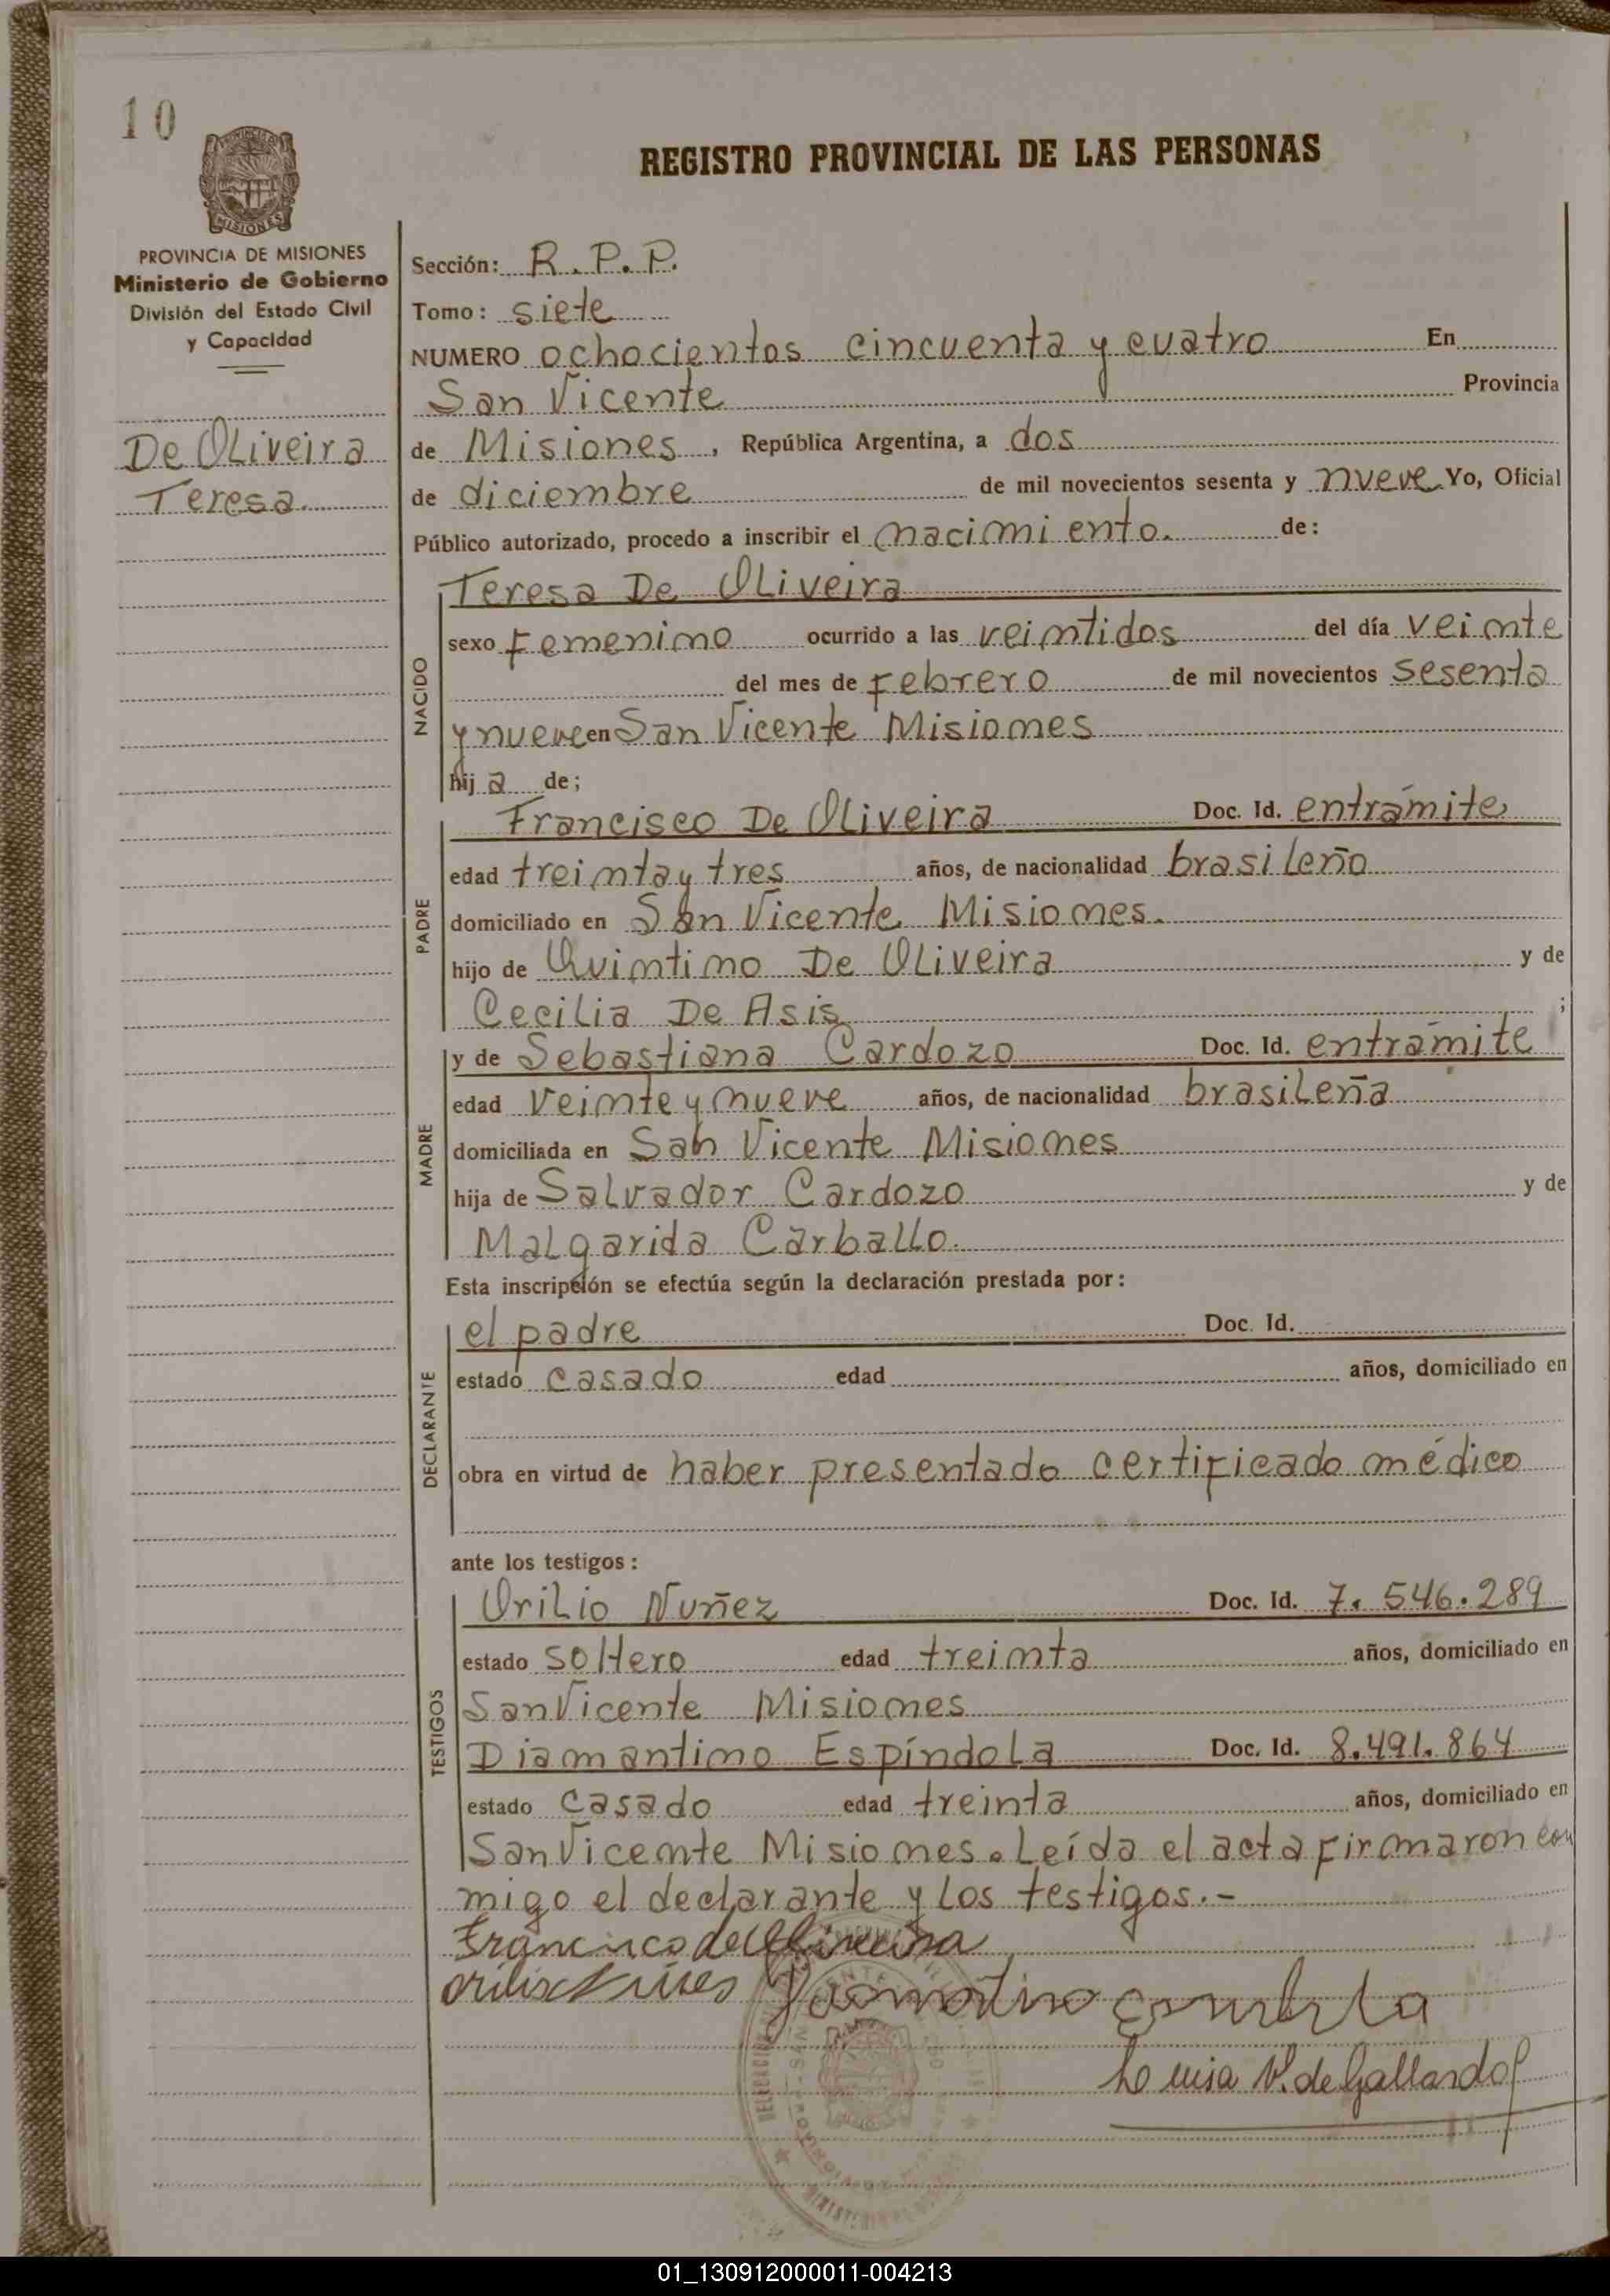 10
PROVINCIA DE MISIONES
Ministerio de Gobierno
División del Estado Civil
y Capacidad
De Oliveira
Teresa
REGISTRO PROVINCIAL DE LAS PERSONAS
Sección: R.P.P.
Tomo: siete
NUMERO ochocientos cincuenta y cuatro En
San Vicente Provincia
de Misiones, República Argentina, a dos
de diciembre de mil novecientos sesenta y nueve Yo, Oficial
Público autorizado, procedo a inscribir el nacimiento. de:
NACIDO
Teresa De Oliveira
sexo Femenino ocurrido a las veintidos del día veinte
del mes de Febrero de mil novecientos sesenta
y nueve en San Vicente Misiones
hij a de;
PADRE
Francisco De Oliveira Doc. Id. entrámite
edad treinta y tres años, de nacionalidad brasileño
domiciliado en San Vicente Misiones.
hijo de Quintino De Oliveira y de
Cecilia De Asis ;
MADRE
y de Sebastiana Cardozo Doc. Id. entrámite
edad veinte y nueve años, de nacionalidad brasileña
domiciliada en San Vicente Misiones
hija de Salvador Cardozo y de
Malgarida Carballo.
Esta inscripción se efectúa según la declaración prestada por:
DECLARANTE
el padre Doc. Id.
estado casado edad años, domiciliado en
obra en virtud de haber presentado certificado médico
ante los testigos:
TESTIGOS
Orilio Nuñez Doc. Id. 7.546.289
estado soltero edad treinta años, domiciliado en
San Vicente Misiones
Diamantino Espíndola Doc. Id. 8.491.864
estado casado edad treinta años, domiciliado en
San Vicente Misiones. Leída el acta firmaron con
migo el declarante y los testigos.-
Luisa V. de Gallardo
01_130912000011-004213